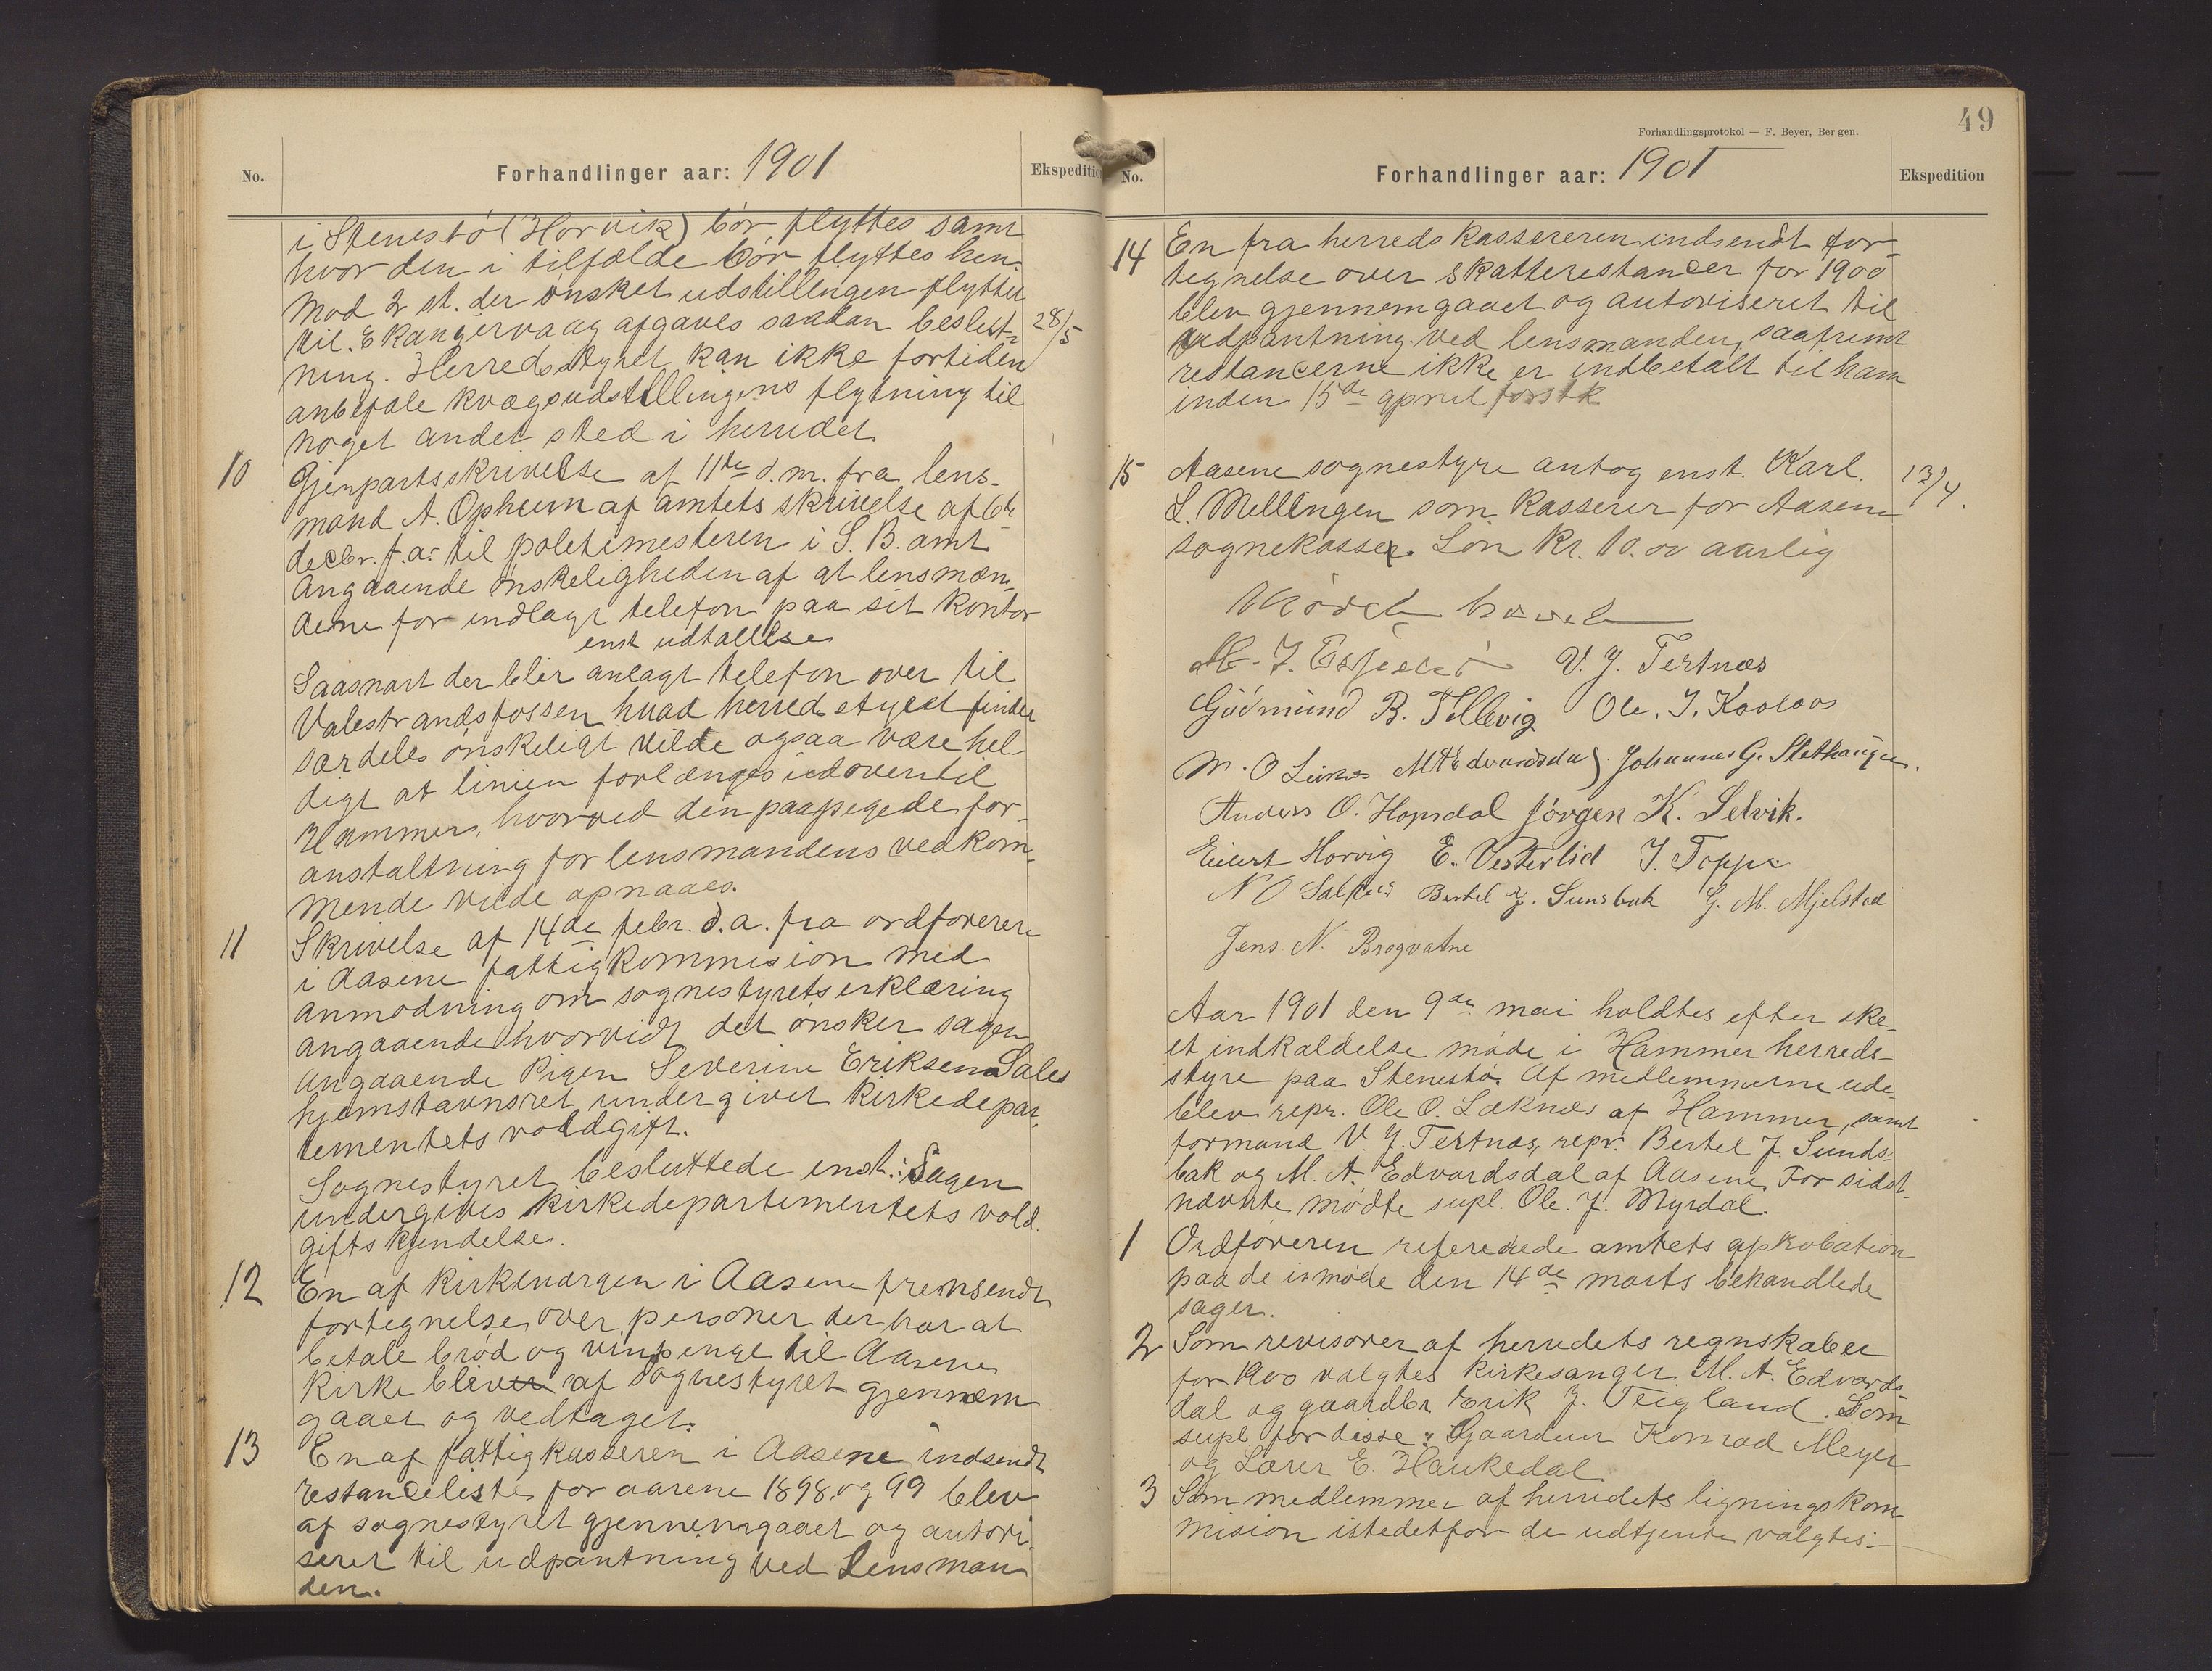 No.
Forhandlinger aar: 1901
Ekspedition
i Stenestø (Horvik) bør flyttes samt
hvor den i tilfælde bør flyttes hen.
Mod 2 st. der ønsket udstillingen flyttet
til Ekangervaag afgaves saadan beslut-
28/5
ning. Herredsstyret kan ikke fortiden
anbefale kvægudstillingens flytning til
noget andet sted i herredet.
10 Gjenpartsskrivelse af 11te d.m. fra lens-
mand A. Opheim af amtets skrivelse af 6te
decbr. f.a. til politimesteren i S. B. amt
Angaaende ønskeligheden af at lensmæn-
dene for indlagt telefon paa sit kontor
enst udtallelse
Saasnart der blir anlagt telefon over til
Valestrandsfossen hvad herredsstyret finder
særdeles ønskeligt vilde ogsaa være hel-
digt at linien forlænges udover til
Hammer, hvorved den paapegede for-
anstaltning for lensmandens vedkom-
mende vilde opnaaes.
11 Skrivelse af 14de febr. d.a. fra ordføreren
i Aasene fattigkommision med
anmodning om sognestyrets erklæring
angaaende hvorvidt det ønsker sagen
angaaende Pigen Severine Eriksen Sales
hjemstavnsret undergivet kirkedepar-
tementets voldgift.
Sognestyret besluttede enst.: Sagen
undergives kirkedepartementets vold-
giftskjendelse.
12 En af kirkeværgen i Aasene fremsendt
fortegnelse over personer der har at
betale brød og vinpenge til Aasene
kirke blev af sognestyret gjennem-
gaaet og vedtaget.
13 En af fattigkasseren i Aasene indsendt
restanceliste for aarene 1898 og 99 blev
af sognestyret gjennemgaaet og autori-
seret til udpantning ved Lensman
den.
49
Forhandlingsprotokol — F. Beyer, Bergen.
No.
Forhandlinger aar: 1901
Ekspedition
14 En fra herredskassereren indsendt for-
tegnelse over skatterestancer for 1900
blev gjennemgaaet og autoriseret til
udpantning ved lensmanden, saafremt
restancerne ikke er indbetalt til ham
inden 15de april förstk
15 Aasene sognestyre antog enst. Karl
13/4.
L. Mellingen som kasserer for Aasene
sognekasse. Løn Kr. 10.00 aarlig
Mødet hævet
V. J. Tertnæs
Gudmund B. Tellevig
M. O M A Edvardsdal Johannes G. Slethaugen.
Anders O. Hopsdal Jørgen K. Selvik.
Eilert Horvig E. Vesterlid J. Toppe
N O Bertel J. Sunsbak G. M. Mjelstad
Jens N. Brogvatne
Aar 1901 den 9de mai holdtes efter ske-
et indkaldelse møde i Hammer herreds-
styre paa Stenestø. Af medlemmerne ude-
blev repr. Ole O. Leknes af Hammer, samt
formand V. J. Tertnæs, repr. Bertel J. Sunds-
bak og M. A. Edvardsdal af Aasene. For sidst-
nævnte mødte supl. Ole J. Myrdal.
1 Ordføreren refererede amtets approbation
paa de i møde den 14de marts behandlede
sager.
2 Som revisorer af herredets regnskaber
for 1900 valgtes kirkesanger M. A. Edvards-
dal og gaardbr Erik J. Teigland. Som
supl for disse: Gaardeier Konrad Meyer
og Lærer E. Haukedal.
3 Som medlemmer af herredets lignings kom
mision istedetfor de udtjente valgtes: